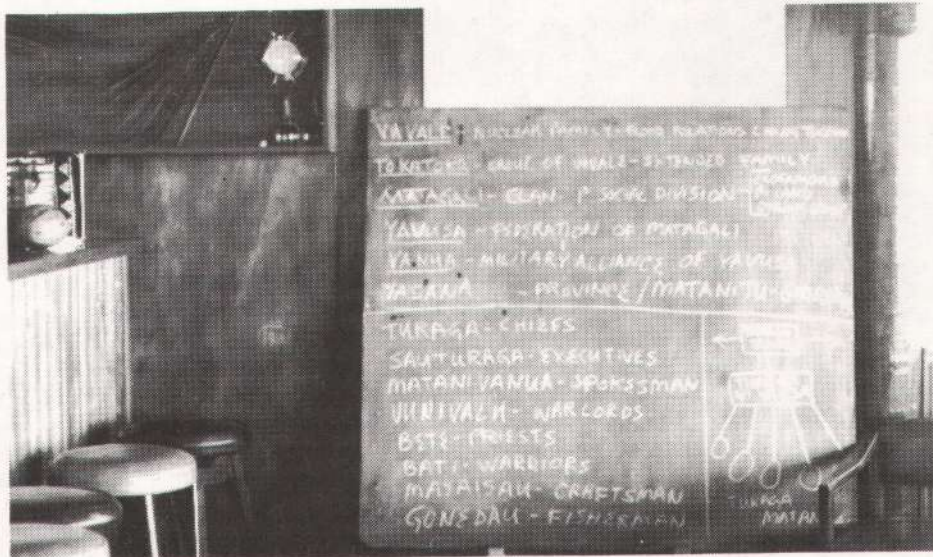 VAVALE: NUCLEAR FAMILY - BLOOD RELATIONS LIVING
TOKATOKA - GROUP OF VAVALE - EXTENDED FAMILY
MATAGALI - CLAN - P SOCIAL DIVISION -
YAVUSA - FEDERATION OF MATAGALI
VANUA - MILITARY ALLIANCE OF YAVUSA
YASANA - PROVINCE/MATANITU-
TURAGA - CHIEFS
SAUTURAGA - EXECUTIVES
MATANIVANUA - SPOKESMAN
VUNIVALU - WARLORDS
BETE - PRIESTS
BATI - WARRIORS
MATAISAU - CRAFTSMAN
GONEDAU - FISHERMAN
TURAGA
MATAN